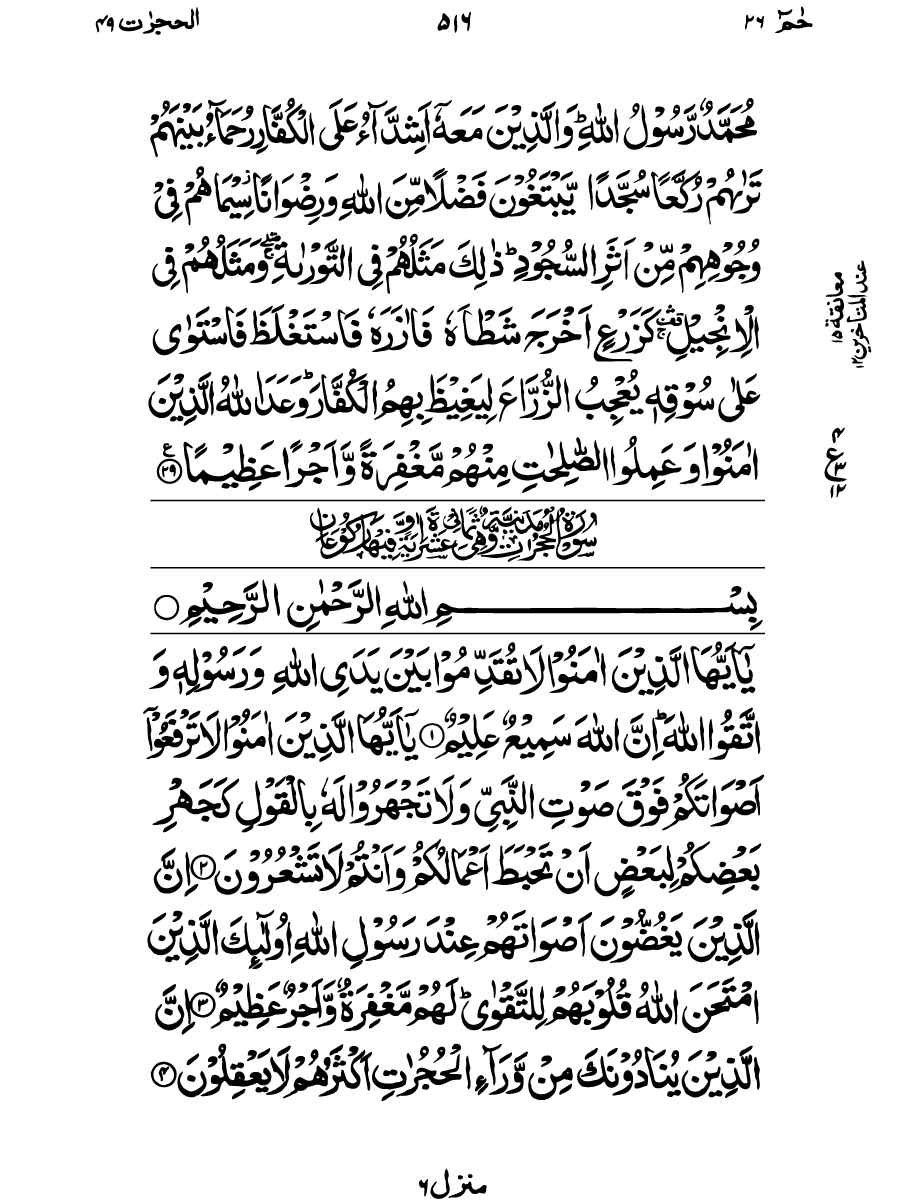 حٰمٓ ٢٦ ٥١٦ الحجرٰت ٤٩
مُحَمَّدٌ رَّسُوْلُ اللّٰهِؕ وَالَّذِيْنَ مَعَهٗۤ اَشِدَّآءُ عَلَى الْكُفَّارِ رُحَمَآءُ بَيْنَهُمْ
تَرٰىهُمْ رُكَّعًا سُجَّدًا يَّبْتَغُوْنَ فَضْلًا مِّنَ اللّٰهِ وَرِضْوَانًا٘ سِيْمَاهُمْ فِيْ
وُجُوْهِهِمْ مِّنْ اَثَرِ السُّجُوْدِؕ ذٰلِكَ مَثَلُهُمْ فِي التَّوْرٰىةِ ۛۖۚ وَمَثَلُهُمْ فِي
الْاِنْجِيْلِ ۛ۫ۚ كَزَرْعٍ اَخْرَجَ شَطْاَهٗ فَاٰزَرَهٗ فَاسْتَغْلَظَ فَاسْتَوٰى
عَلٰى سُوْقِهٖ يُعْجِبُ الزُّرَّاعَ لِيَغِيْظَ بِهِمُ الْكُفَّارَؕ وَعَدَ اللّٰهُ الَّذِيْنَ
اٰمَنُوْا وَعَمِلُوا الصّٰلِحٰتِ مِنْهُمْ مَّغْفِرَةً وَّاَجْرًا عَظِيْمًا ࣖ ﴿٢٩﴾
معانقة ١٥
عند المتاخرين ١٢
سُوْرَةُ الْحُجُرٰتِ مَدَنِيَّةٌ وَّهِيَ ثَمَانِيَ عَشْرَةَ اٰيَةً وَّفِيْهَا رُكُوْعَانِ
بِسْمِ اللّٰهِ الرَّحْمٰنِ الرَّحِيْمِ ○
يٰۤاَيُّهَا الَّذِيْنَ اٰمَنُوْا لَا تُقَدِّمُوْا بَيْنَ يَدَيِ اللّٰهِ وَرَسُوْلِهٖ وَ
اتَّقُوا اللّٰهَؕ اِنَّ اللّٰهَ سَمِيْعٌ عَلِيْمٌ ﴿١﴾ يٰۤاَيُّهَا الَّذِيْنَ اٰمَنُوْا لَا تَرْفَعُوْۤا
اَصْوَاتَكُمْ فَوْقَ صَوْتِ النَّبِيِّ وَلَا تَجْهَرُوْا لَهٗ بِالْقَوْلِ كَجَهْرِ
بَعْضِكُمْ لِبَعْضٍ اَنْ تَحْبَطَ اَعْمَالُكُمْ وَاَنْتُمْ لَا تَشْعُرُوْنَ ﴿٢﴾ اِنَّ
الَّذِيْنَ يَغُضُّوْنَ اَصْوَاتَهُمْ عِنْدَ رَسُوْلِ اللّٰهِ اُولٰٓئِكَ الَّذِيْنَ
امْتَحَنَ اللّٰهُ قُلُوْبَهُمْ لِلتَّقْوٰىؕ لَهُمْ مَّغْفِرَةٌ وَّاَجْرٌ عَظِيْمٌ ﴿٣﴾ اِنَّ
الَّذِيْنَ يُنَادُوْنَكَ مِنْ وَّرَآءِ الْحُجُرٰتِ اَكْثَرُهُمْ لَا يَعْقِلُوْنَ ﴿٤﴾
منزل ٦